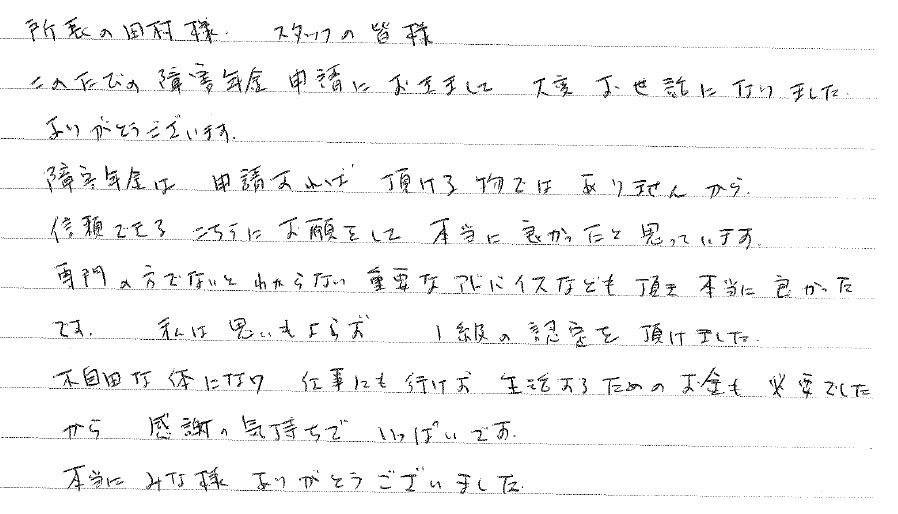 所長の田村様. スタッフの皆様
このたびの 障害年金 申請に おきまして 大変 お世話に なりました.
ありがとうございます.
障害年金は 申請すれば 頂ける物では ありませんから.
信頼できる こちらに お願いをして 本当に 良かったと 思っています.
専門の方でないと わからない 重要な アドバイスなども 頂き 本当に 良かった
です. 私は 思いもよらず 1級の 認定を 頂けました.
不自由な体になり 仕事にも 行けず 生活するための お金も 必要でした
から 感謝の気持ちで いっぱいです.
本当に みな様 ありがとうございました.